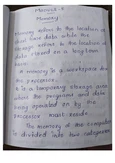 Module - 3
Memory
Memory refers to the location of
data while the
storage refers to the location of
data stored on a long term
A memory is a workspace for
the processor.
It is a temporary storage area
where the program and data
being operated on by the
processor must reside.
The memory of the computer
is divided into two categories